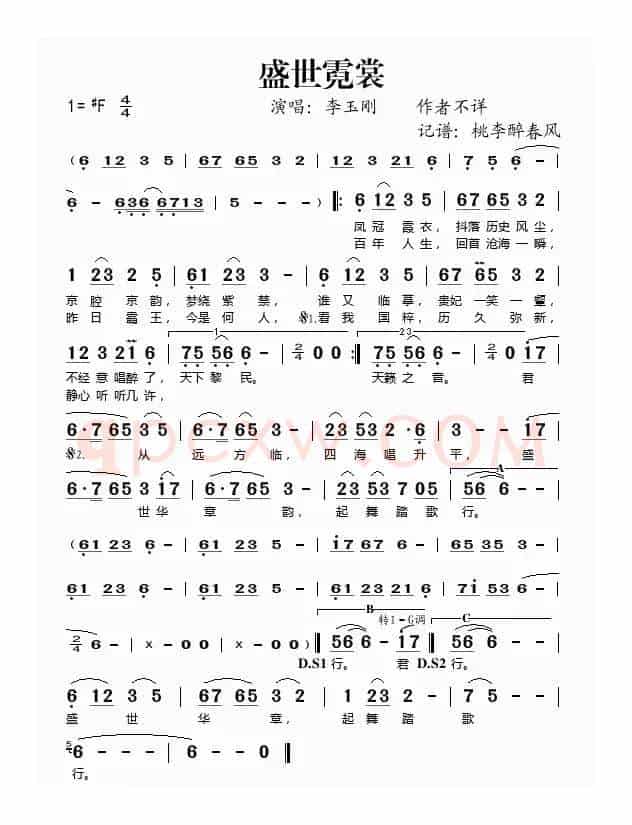 盛世霓裳
1=♯F 4/4 演唱：李玉刚 作者不详
记谱：桃李醉春风
( 6 12 3 5 | 67 65 3 2 | 12 3 21 6 | 7 5 6 - |
6 - 636 6713 | 5 - - - ) ‖: 6 12 3 5 | 67 65 3 2 |
凤冠 霞衣，抖落历史风尘，
百年 人生，回首沧海一瞬，
1 23 2 5 | 61 23 2 - | 3 23 5 6 | 67 65 3 2 |
京腔 京韵，梦绕紫禁，谁又临摹，贵妃一笑一颦，
昨日霸王，今是何人，𝄋1.看我国梓，历久弥新，
1 23
12 3 21 6 | 75 56 6 - | 2/4 0 0 :| 75 56 6 - | 2/4 0 17 |
不经意唱醉了，天下黎民。 天籁之音。 君
静心听听几许，
6·7 65 3 - | 6·7 65 3 - | 23 53 2·6 | 3 - - 17 |
𝄋2. 从 远方临，四海唱升平，盛
A
6·7 65 3 17 | 6·7 65 3 - | 23 53 7 05 | 56 6 - - |
世华章 韵，起舞踏歌行。
( 61 23 6 - | 61 23 6 - | 17 67 6 - | 65 35 3 - |
61 23 6 - | 61 23 6 - | 61 23 21 6 | 71 53 6 - |
B 转1=G调 C
2/4 6 - | x - 0 0 | x - 0 0 ) ‖ 56 6 - 17 ‖ 56 6 - - |
D.S1 行。 君 D.S2 行。
6 12 3 5 | 67 65 3 - | 1 2 3 5 | 7 - - 5 |
盛世华章，起舞踏歌
5 6 - - - | 6 - - 0 ‖
行。
qpcxw.COM